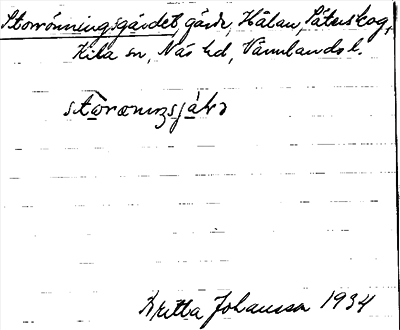 Storrönningsgärdet, gärde, Hålan, Säterskog,
Kila sn, Näs hd, Värmlands l.
Britta Johansson 1934